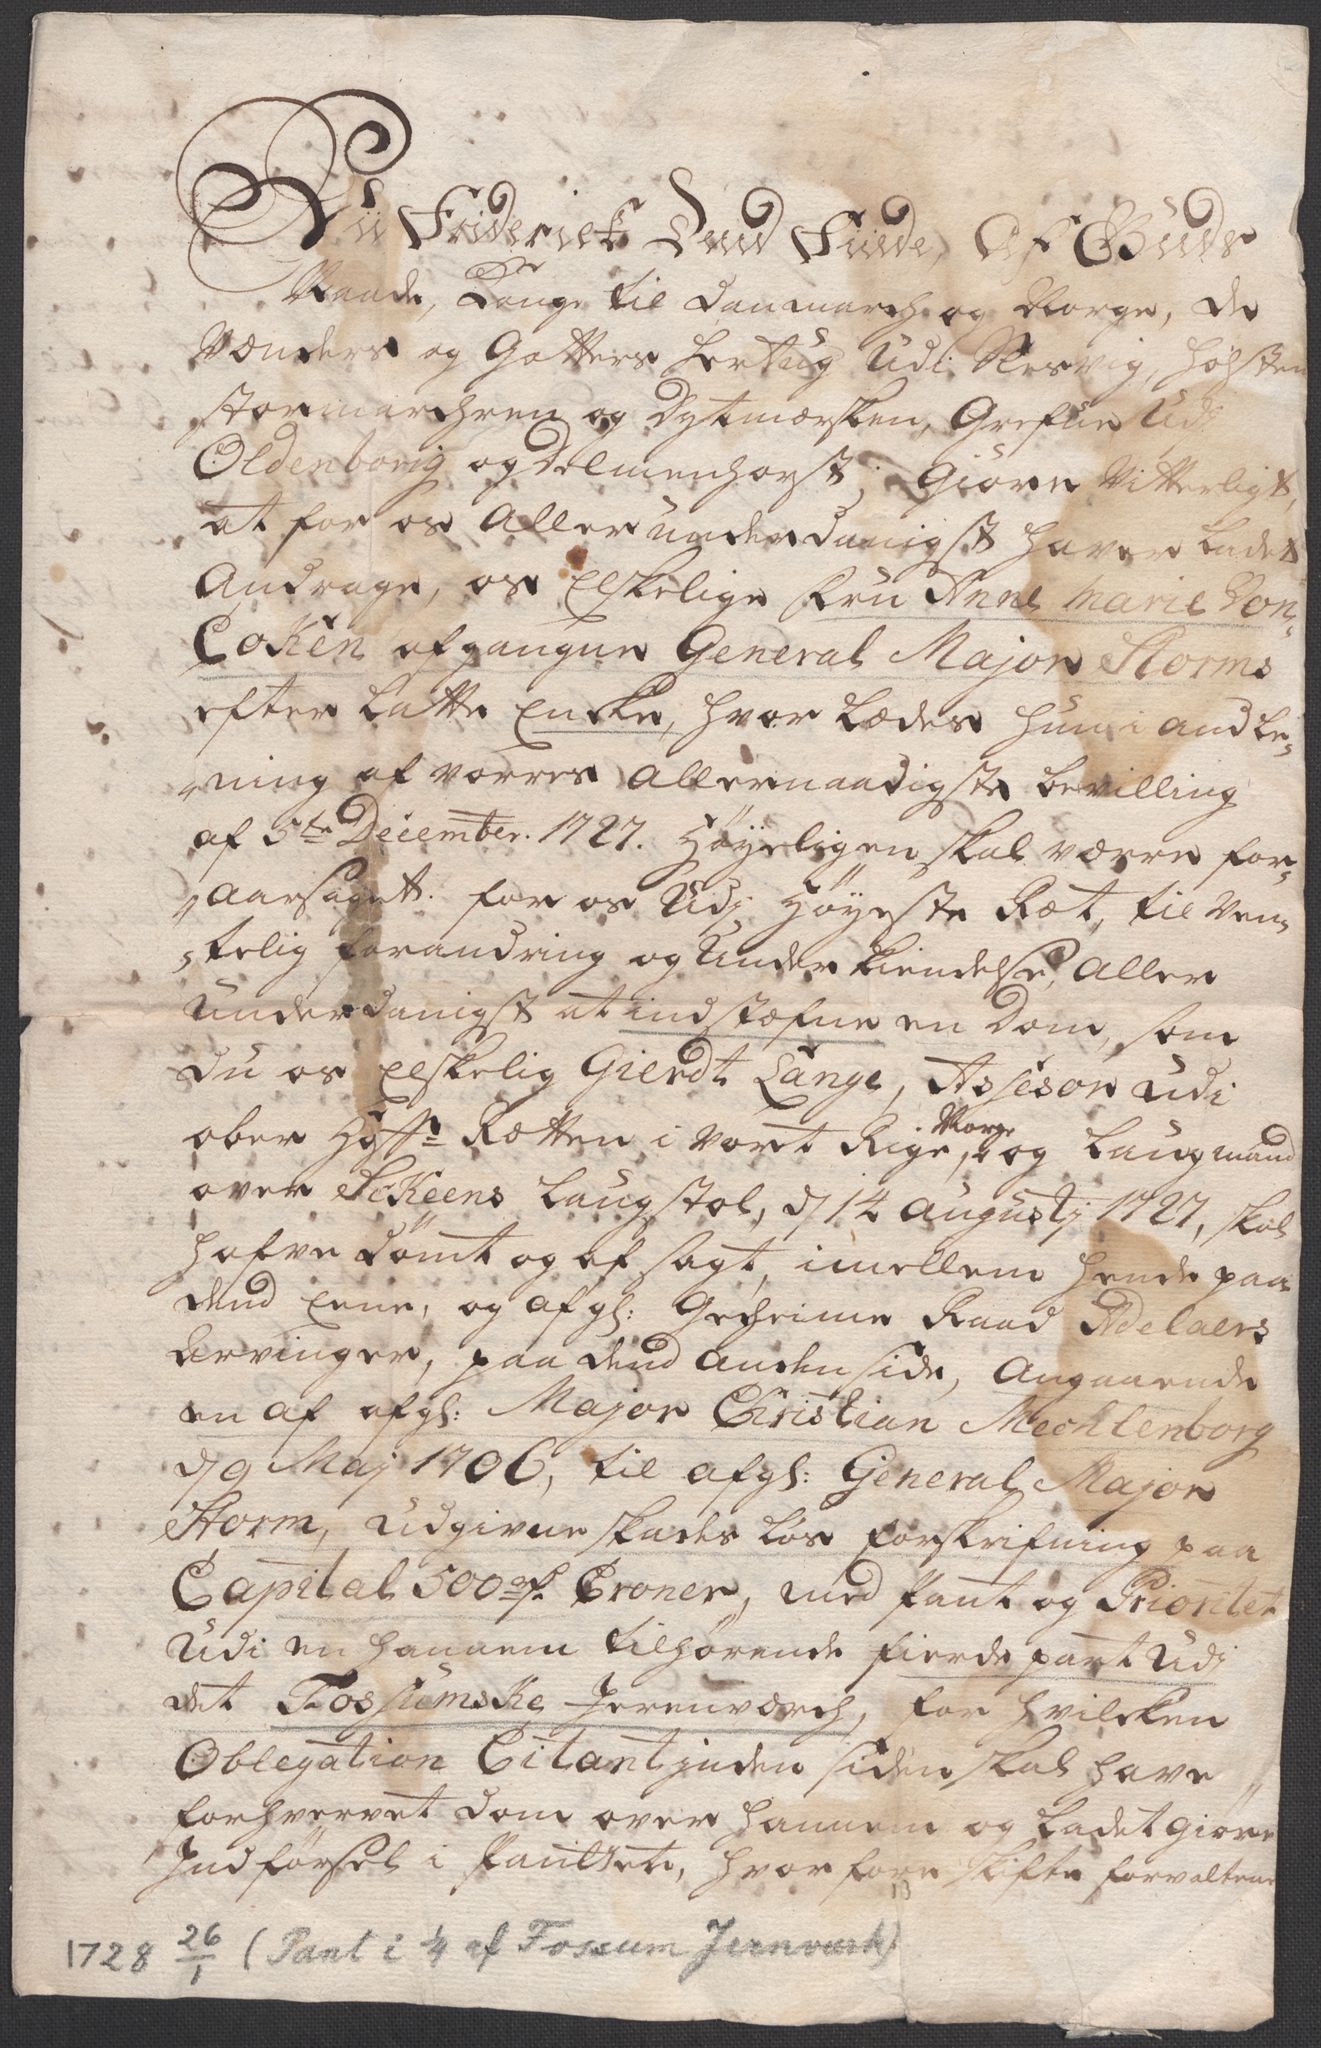 Wii Friderich dend Fierde, Af Guds
Naade, Konge til Danmarch og Norge, de
Wenders og Gotters Hertug Udi Slesvig, Holsten
Stormarchren og Dytmersken, Grefue Udj
Oldenborig og Delmenhorst; Giøre Vitterligt,
at for os Allerunderdanigst haver ladet
Andrage, os Elskelige Fru Anne Marie Von
Coken afgangne General Major Storms
efter latte Encke, hvorledes hun i andle¬
¬ning af vorres Allernaadigste bevilling
af 5te December. 1727. Høyeligen skal være for¬
¬aarsaget. for os Udj Høyeste Ræt, til ven¬
¬telig forandring og Underkiendelse, Aller
Underdanigst at indstæfne en Dom, som
du os Elskelig Gierdt Lange, Assesor Udi
ober Hoff Rætten i vort Rige Norge, og Laugmand
over Scheens Laugstol, d 14 Augustj 1727, skal
hafve dømt og af sagt, imellem hende paa
dend Eene, og afgl: Geheime Raad Adelaers
Arvinger, paa dend Anden side, Angaaende
en af afgl: Major Christian Mechlenborg
d 9 Maj 1706, til afgl: General Major
Storm, Udgivne skadesløs forskrifning paa
Capital 500 Croner, med Pant og Prioritet
Udi en hannem tilhørende fierde part Udj
det Fossumske Jerenværch, for hvilcken
Oblegation Citantinden siden skal have
forhvervet Dom over hannem og ladet giøre
Indførsel i Pantset, hvorfore skifte forvaltene
13
1728 26/1 (Pant i 1/4 af Fossum Jernverk)